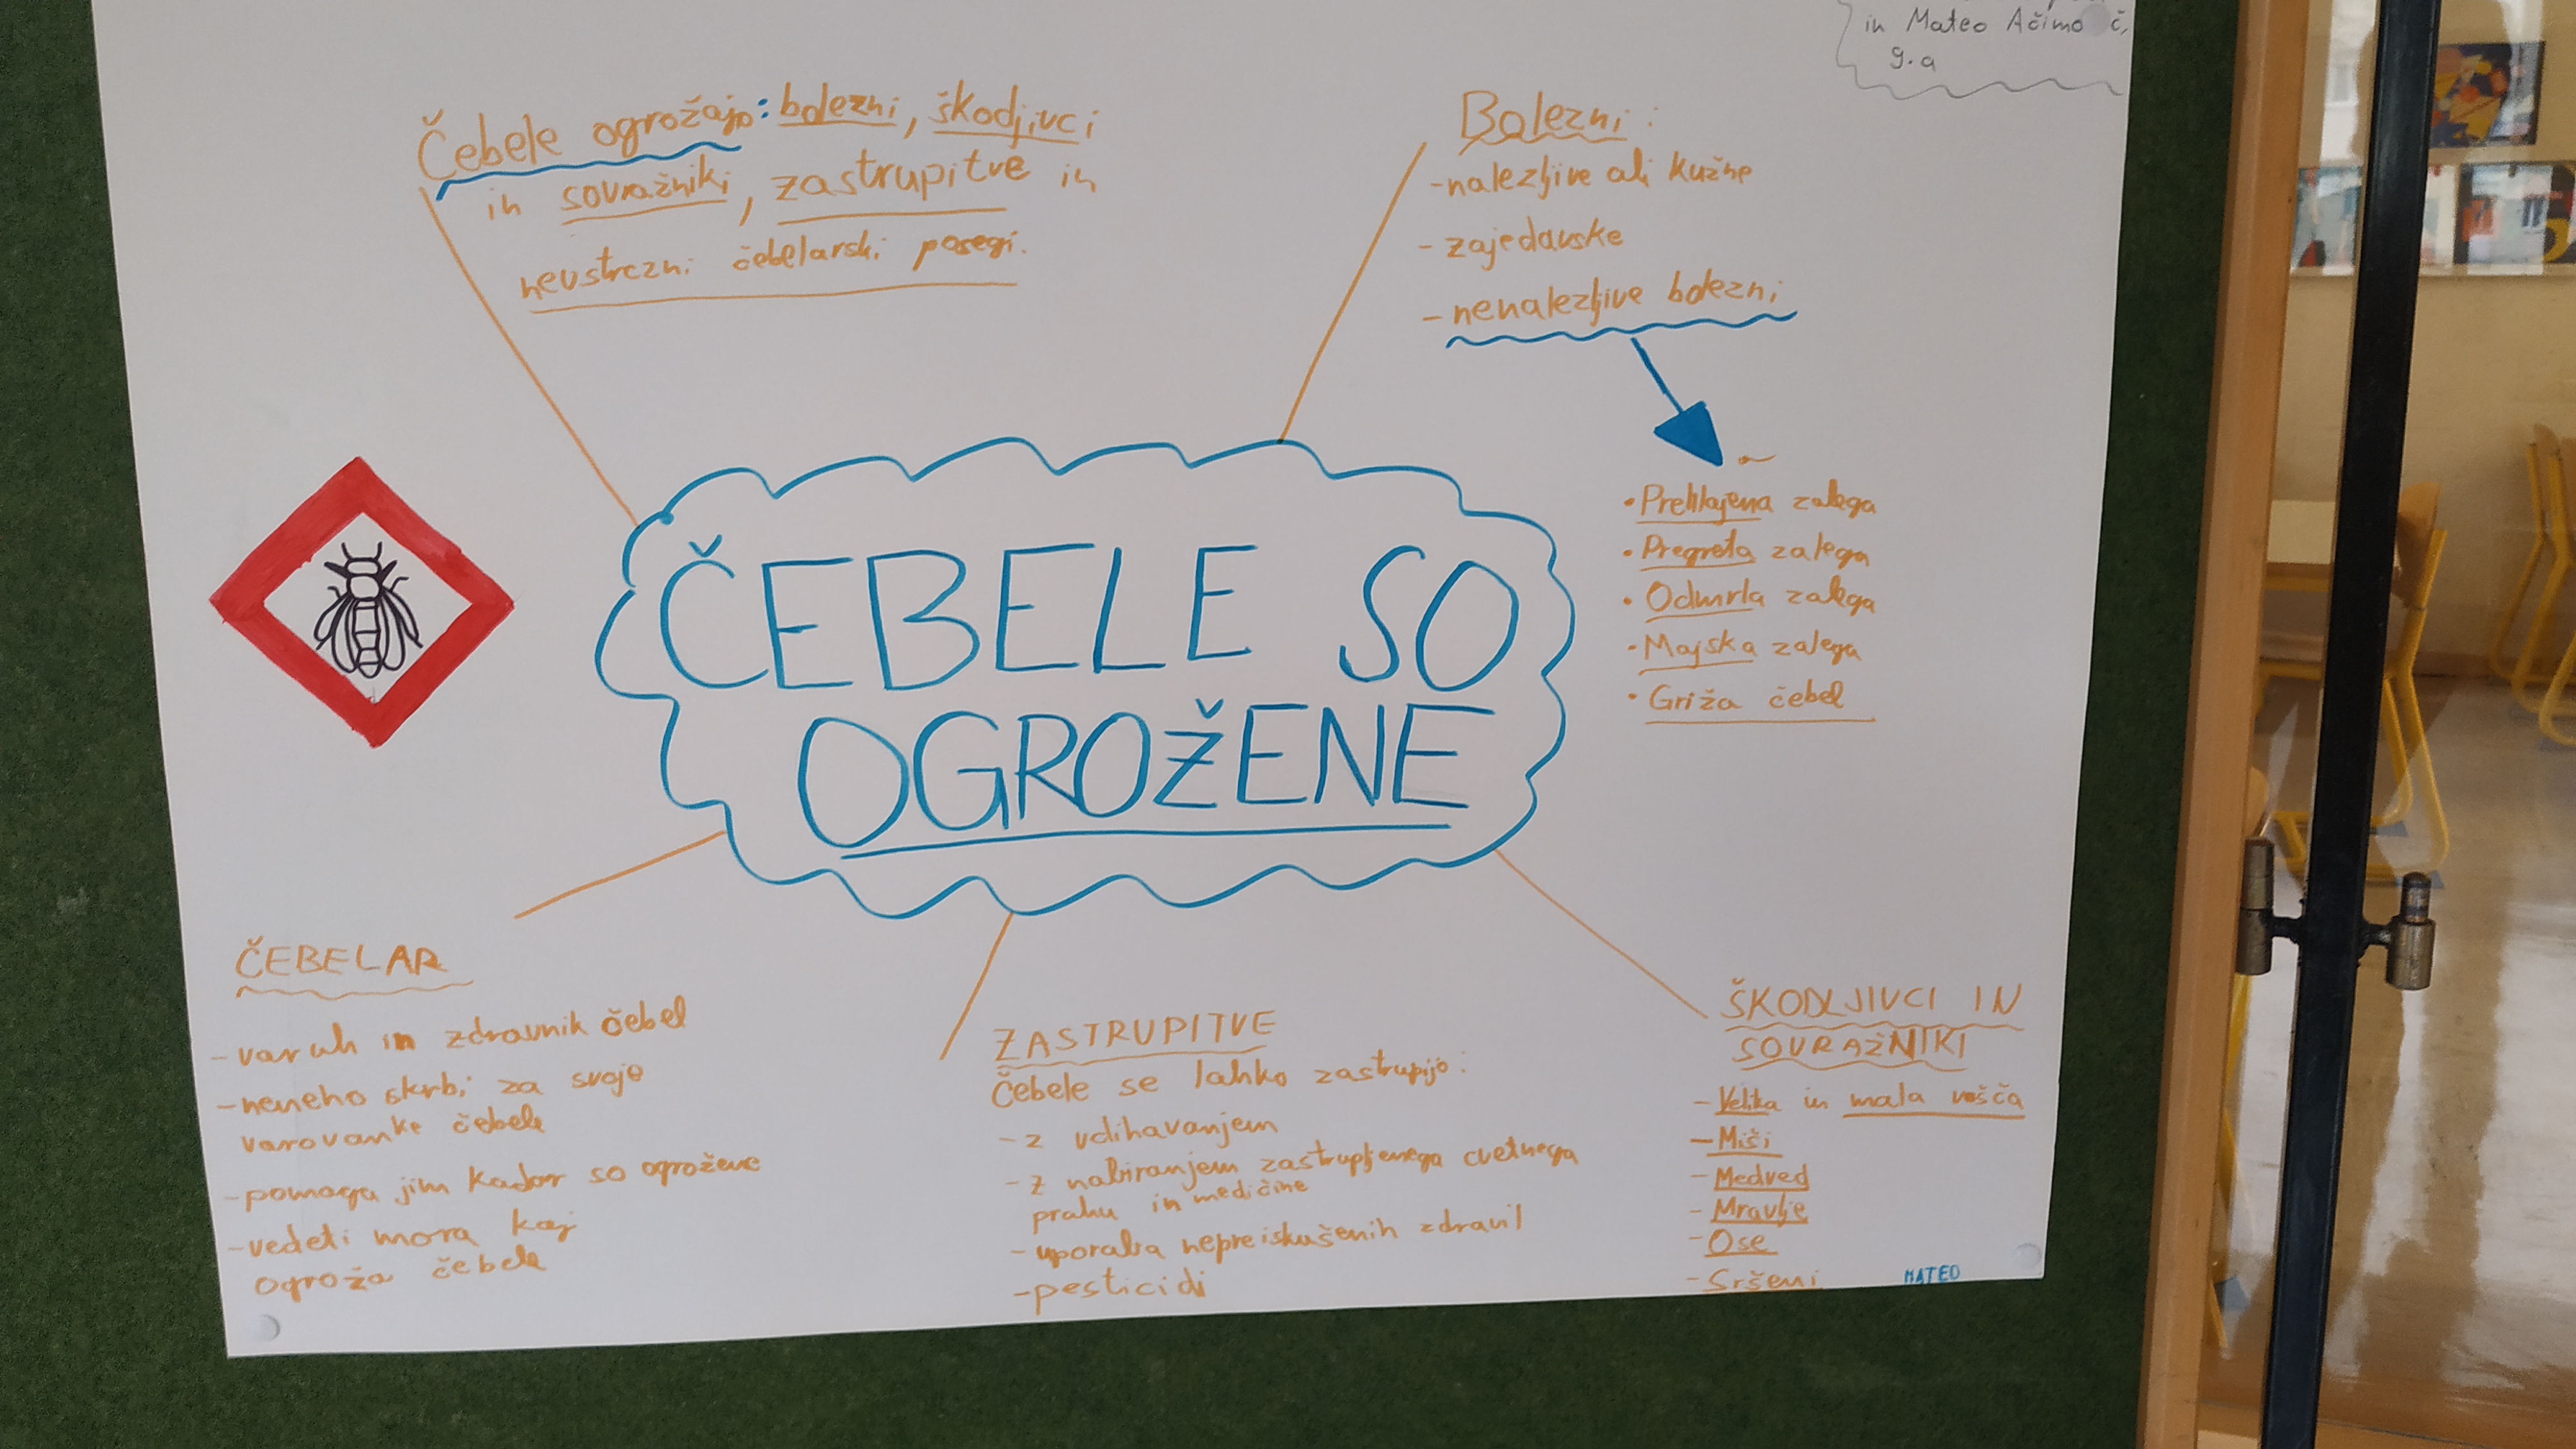 in Mateo Ačimovč,
9.a
Čebele ogrožajo: bolezni, škodjivci
in sovražniki, zastrupitve in
neustrezni čebelarski posegi.
Bolezni:
-nalezljive ali kužne
- zajedavske
- nenalezljive bolezni
• Prehlajena zalega
• Pregreta zalega
• Odmrla zalega
• Majska zalega
• Griža čebel
ČEBELE SO
OGROŽENE
ČEBELAR
- varuh in zdravnik čebel
- neneho skrbi za svoje
varovanke čebele
- pomaga jim kadar so ogrožene
- vedeti mora kaj
ogroža čebele
ZASTRUPITVE
Čebele se lahko zastrupijo:
- z vdihavanjem
- z nabiranjem zastrupljenega cvetnega
prahu in medičine
- uporaba nepreiskušenih zdravil
- pesticidi
ŠKODLJIVCI IN
SOVRAŽNIKI
- Velika in mala vešča
- Miši
- Medved
- Mravlje
- Ose
- Sršeni
MATEO